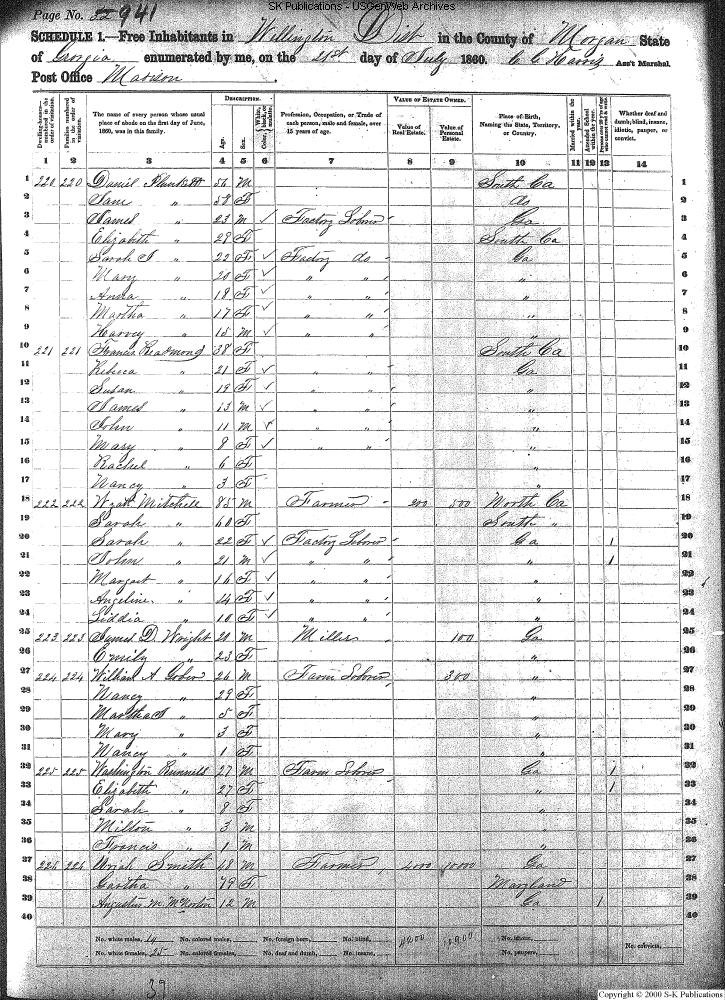 SK Publications - USGenWeb Archives
Page No. 22 941
SCHEDULE 1.—Free Inhabitants in Wellington Dist in the County of Morgan State
of Georgia enumerated by me, on the 21st day of July 1860. C C Harris Ass't Marshal.
Post Office Madison
DESCRIPTION. VALUE OF ESTATE OWNED.
Dwelling-houses—numbered in the order of visitation. Families numbered in the order of visitation. The name of every person whose usual place of abode on the first day of June, 1860, was in this family. Age. Sex. Color, White, black, or mulatto. Profession, Occupation, or Trade of each person, male and female, over 15 years of age. Value of Real Estate. Value of Personal Estate. Place of Birth, Naming the State, Territory, or Country. Married within the year. Attended School within the year. Whether deaf and dumb, blind, insane, idiotic, pauper, or convict.
1 2 3 4 5 6 7 8 9 10 11 12 13 14
1 220 220 Daniel Plunkett 56 M South Ca 1
2 Jane " 58 F do 2
3 James " 23 M ✓ Factory Laborer Ga 3
4 Elizabeth " 29 F South Ca 4
5 Sarah J " 22 F ✓ Factory do Ga 5
6 Mary " 20 F ✓ " " " 6
7 Anna " 18 F ✓ " " " 7
8 Martha " 17 F ✓ " " " 8
9 Harvey " 15 M ✓ " " " 9
10 221 221 Francis Readmond 38 F South Ca 10
11 Rebeca " 21 F ✓ " " Ga 11
12 Susan " 19 F ✓ " " " 12
13 James " 13 M ✓ " " " 13
14 John " 11 M ✓ " " " 14
15 Mary " 8 F ✓ " " " 15
16 Rachel " 6 F " 16
17 Nancy " 3 F " 17
18 222 222 Wyatt Mitchell 85 M Farmer 200 500 North Ca 18
19 Sarah " 60 F South " 19
20 Sarah " 22 F ✓ Factory Laborer Ga 1 20
21 John " 21 M ✓ " " " 1 21
22 Margaet " 16 F ✓ " " " 22
23 Angeline " 14 F ✓ " " " 23
24 Liddia " 10 F ✓ " " " 24
25 223 223 James D. Wright 20 M Miller 100 Ga 25
26 Emily " 23 F " 26
27 224 224 William A Gober 26 M Farm Laborer 300 " 27
28 Nancy " 29 F " 28
29 Martha " 5 F " 29
30 Mary " 3 F " 30
31 Nancy " 1 F " 31
32 225 225 Washington Runnels 27 M Farm Laborer Ga 1 32
33 Elizabeth " 27 F " 1 33
34 Sarah " 8 F " 34
35 Milton " 3 M " 35
36 Francis " 1 M " 36
37 226 226 Uriah Smith 48 M Farmer 4000 10000 Ga 37
38 " 79 F Maryland 38
39 Augustus M. McNorton 12 M Ga 1 39
40 40
No. white males, 14 No. colored males, No. foreign born, No. blind, 4200 10900 No. idiotic,
No. white females, 25 No. colored females, No. deaf and dumb, No. insane, No. paupers, No. convicts,
39
Copyright © 2000 S-K Publications